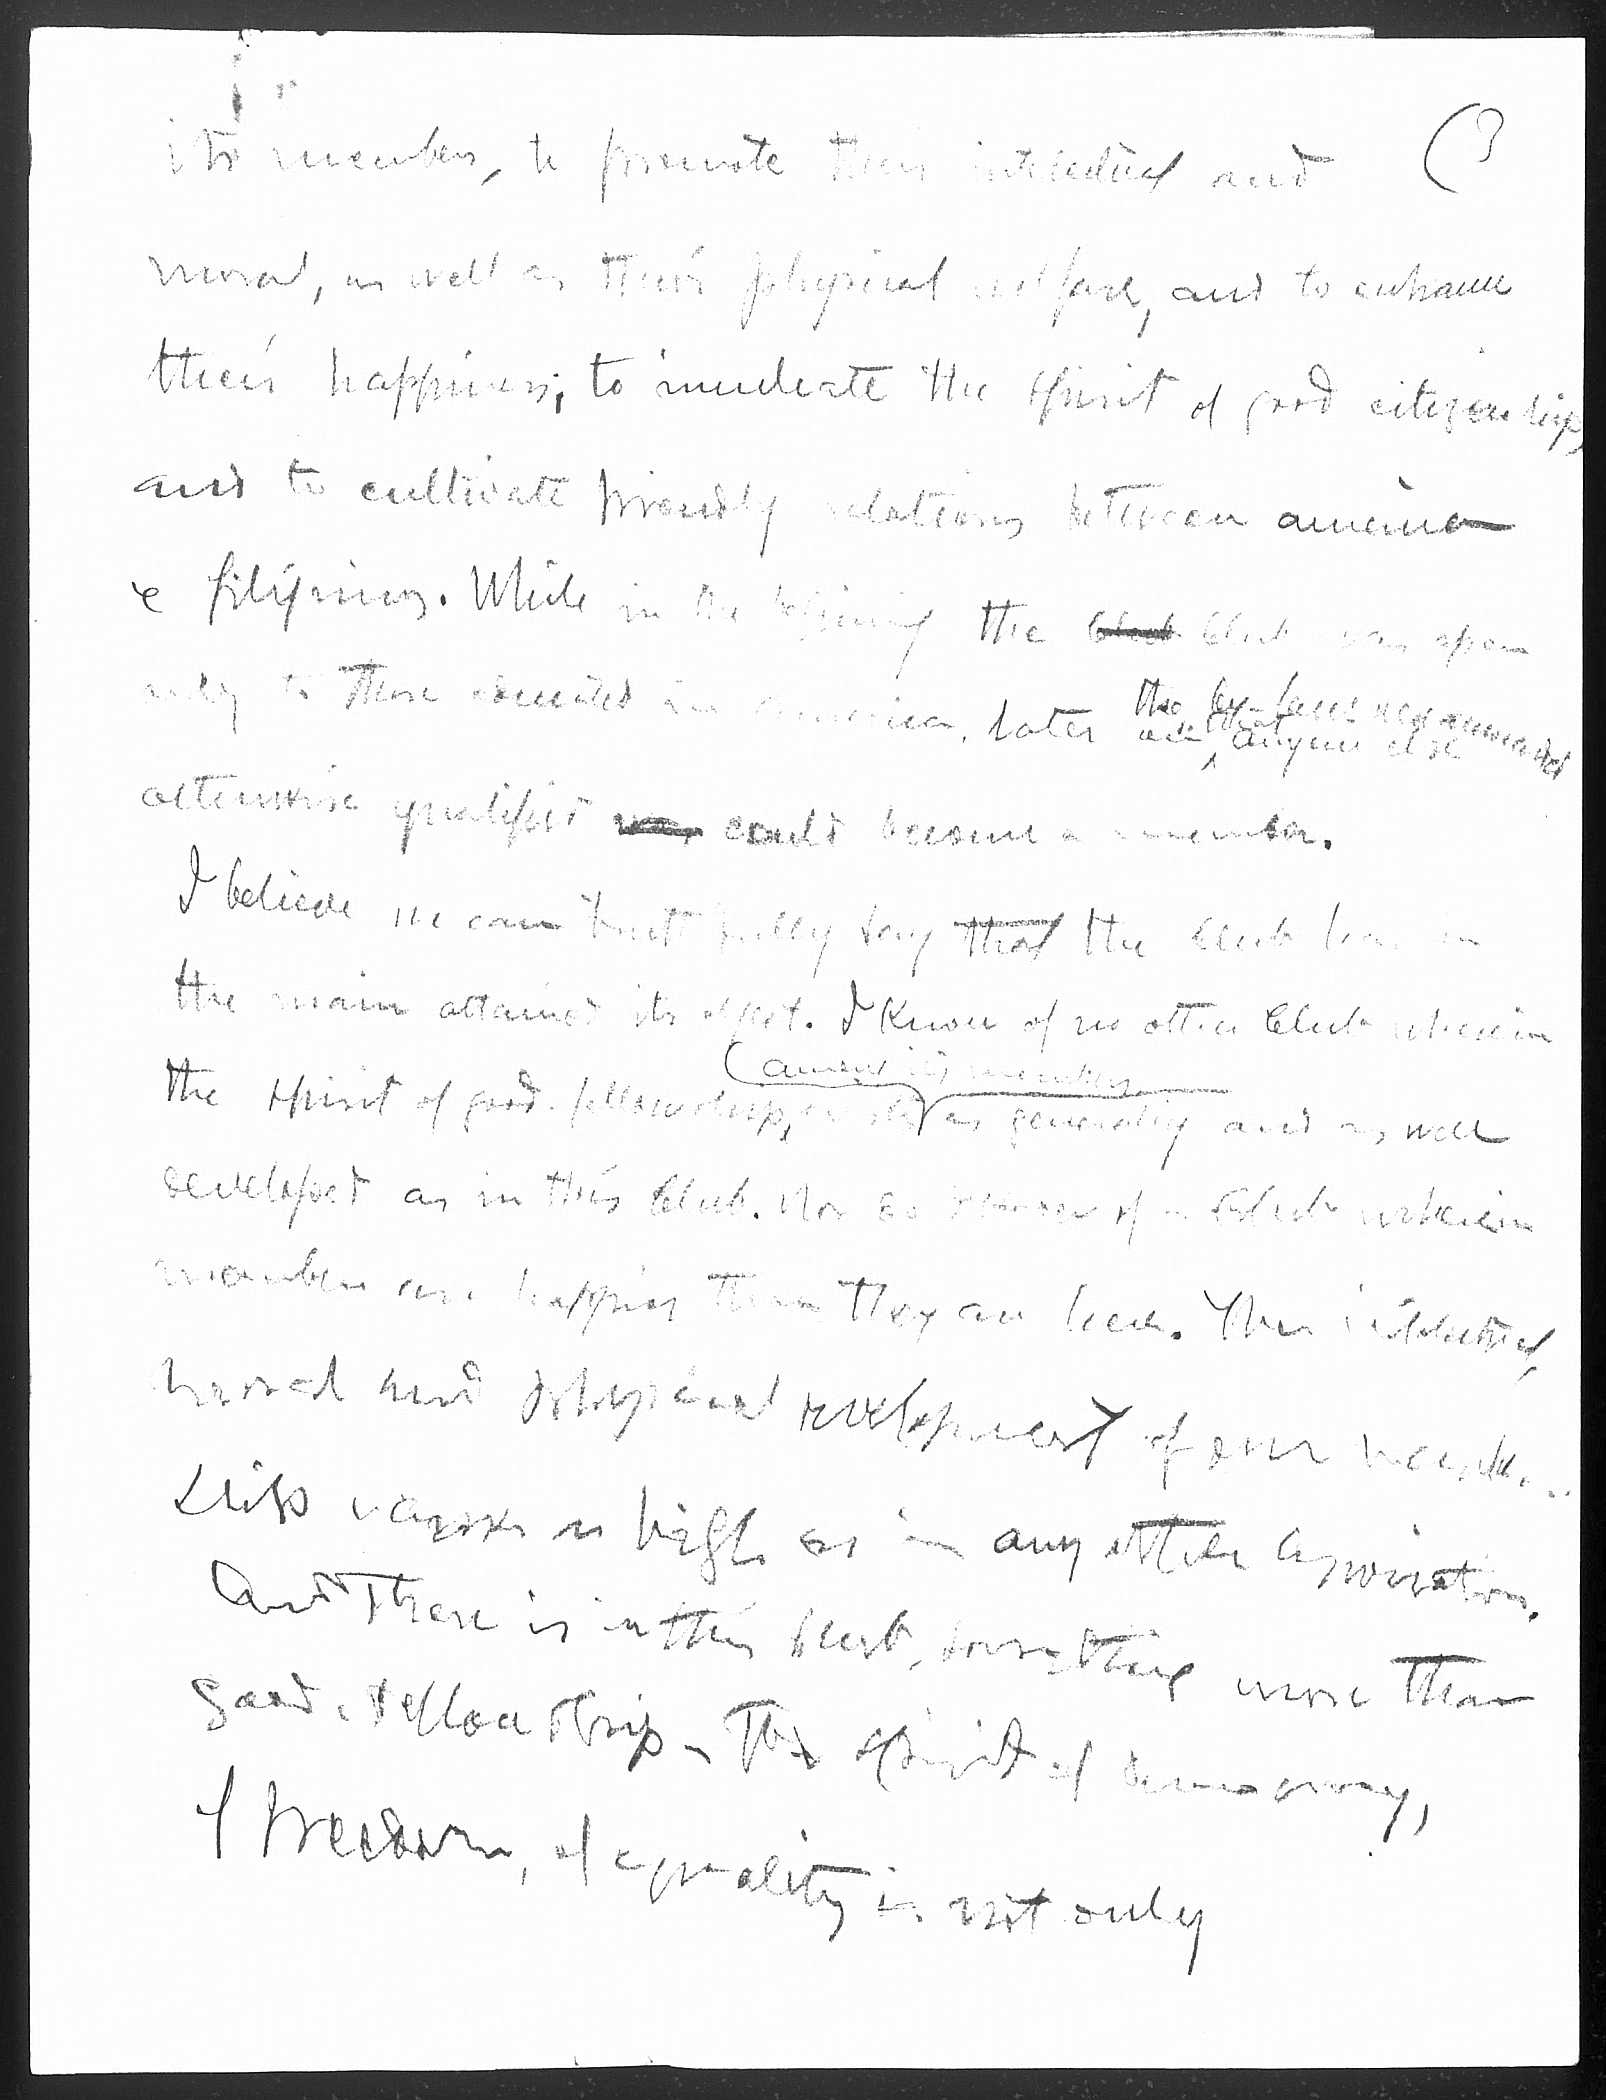 (3
its members, to promote their intellectual and
moral, as well as their physical welfare, and to enhance
their happiness; to inculcate the spirit of good citizenship,
and to cultivate friendly relations between america
& filipinos. While in the beginning the club Club was open
only to those educated in America, later
the by-laws were amended
so that anyone else
otherwise qualified was could become a member.
I believe we can truthfully say that the Club has in
the main attained its object. I know of no other Club wherein
(among its members
the spirit of good-fellowship, is as generally and as well
developed as in this Club. Nor do I know of a Club wherein
members are happier than they are here. The intellectual,
moral and physical development of our
is as high as in any other association.
And there is in this Club, something more than
good-fellowship - The spirit of democracy,
of freedom, of equality is not only